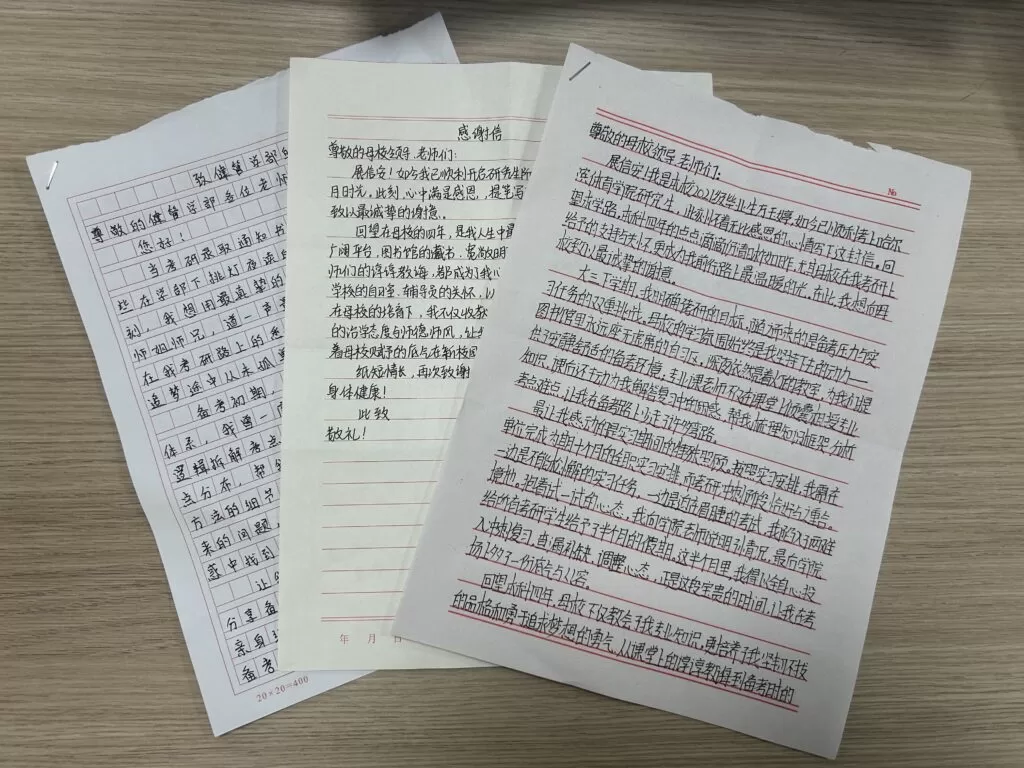 致健管学部
尊敬的健管学部各位老师
您好!
当考研录取通知书
些在学部下挑灯夜读的
刻,我想用最真挚的
师姐师兄,道一声
在我考研路上的
追梦途中从未孤
备考初期,
体系,我曾一度
逻辑拆解考点
点分布,帮
方法的细节
来的问题,
惑中找到
让
分享备
亲身
备考
20×20=400
感谢信
尊敬的母校领导、老师们:
展信安!如今我已顺利开启研究生阶
月时光,此刻,心中满是感恩,提笔写
致以最诚挚的谢意。
回望在母校的四年,是我人生中最
广阔平台,图书馆的藏书、宽敞明
师们的谆谆教诲,都成为了我
学校的自习室、辅导员的关怀,
在母校的培育下,我不仅收获
的治学态度与师德师风,让
着母校赋予的底气在新校园
纸短情长,再次致谢
身体健康!
此致
敬礼!
年 月 日
№
尊敬的母校领导、老师们:
展信安!我是从校2021级毕业生方玉婷,如今已顺利考上哈尔
滨体育学院研究生,此刻怀着无比感恩的心情写下这封信。回
望求学路,本科四年的点点滴滴仍清晰如昨,尤其母校在我考研上
给予的支持与关怀,更成为我前行路上最温暖的光。在此,我想向母
校致以最诚挚的谢意。
大三下学期,我明确考研的目标,随之而来的是备考压力与实
习任务的双重挑战。母校的学习氛围始终是我坚持下去的动力——
图书馆里永远座无虚席的自习区,深夜依然亮着灯的教室,为我们提
供了安静舒适的备考环境,专业课老师不仅在课堂上倾囊相授专业
知识,课后还主动为我解答复习中的困惑,帮我梳理知识框架、分析
考点难点,让我在备考路上少走许多弯路。
最让我感动的是实习期间的体恤照顾。按照实习安排,我需在
单位完成为期十个月的专职实习安排,而考研冲刺阶段恰好与之重合。
一边是不能松懈的实习任务,一边是迫在眉睫的考试,我陷入了两难
境地。抱着试一试的心态,我向学院老师说明了情况,最后学院
给所有考研学生给予了半个月的假期。这半个月里,我得以全身心投
入冲刺复习,查漏补缺、调整心态,正是这段宝贵的时间,让我在考
场上多了一份底气与从容。
回望本科四年,母校不仅教会了我专业知识,更培养了我坚韧不拔
的品格和勇于追求梦想的勇气。从课堂上的谆谆教诲到备考时的